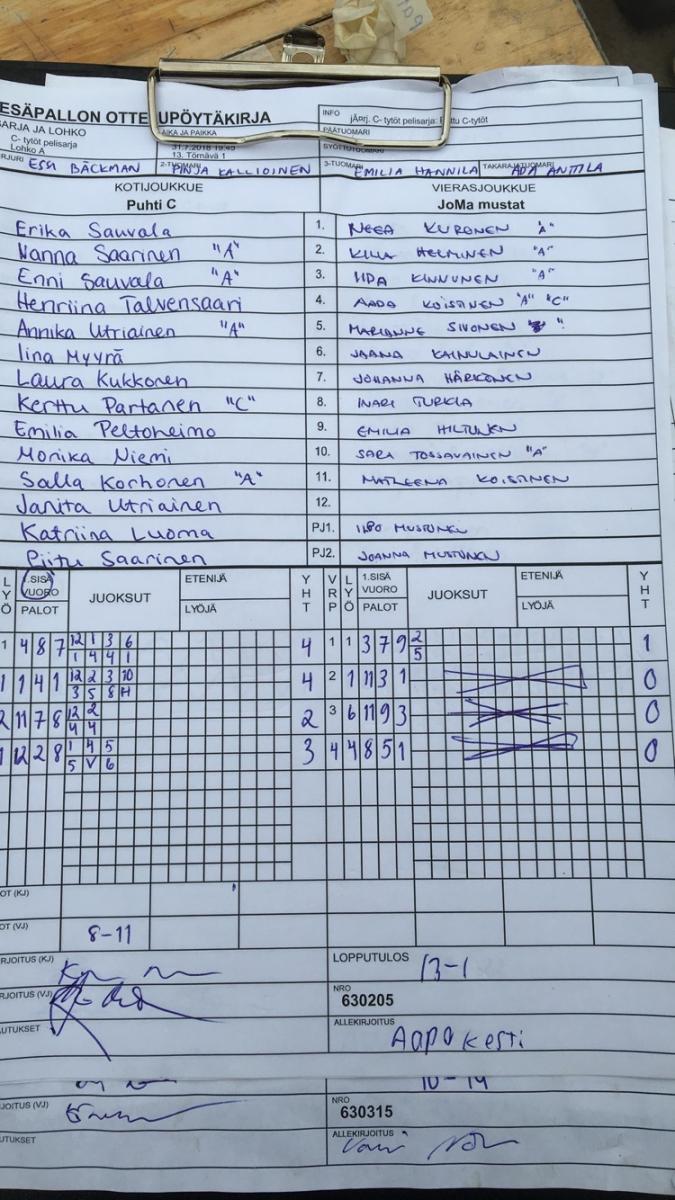 ESÄPALLON OTTELUPÖYTÄKIRJA
INFO jÄPrj. C- tytöt pelisarja: C-tytöt
SARJA JA LOHKO
C- tytöt pelisarja
Lohko A
AIKA JA PAIKKA
31.7.2018 19:45
13. Törnävä 1
PÄÄTUOMARI
SYÖTTÖTUOMARI
ESSI BÄCKMAN 2-TUOMARI PINJA KALLIOINEN 3-TUOMARI EMILIA HANNILA TAKARAJATUOMARI ADA ANTTILA
KOTIJOUKKUE VIERASJOUKKUE
Puhti C JoMa mustat
Erika Sauvala 1. NEEA KURONEN "A"
Nanna Saarinen "A" 2. HELMINEN "A"
Enni Sauvala "A" 3. IIDA KINNUNEN "A"
Henriina Talvensaari 4. AADA KOISTINEN "A" "C"
Annika Utriainen "A" 5. MARIANNE SIVONEN
Iina Myyrä 6. JAANA KAINULAINEN
Laura Kukkonen 7. JOHANNA HÄRKÖNEN
Kerttu Partanen "C" 8. INARI TURKIA
Emilia Peltoheimo 9. EMILIA HILTUNEN
Monika Niemi 10. SARA TOSSAVAINEN "A"
Salla Korhonen "A" 11. MATLEENA KOISTINEN
Janita Utriainen 12.
Katriina Luoma PJ1. ILPO MUSTONEN
Piitu Saarinen PJ2. JOANNA MUSTONEN
LYÖ 1.SISÄ VUORO PALOT JUOKSUT ETENIJÄ LYÖJÄ YHT VRP LYÖ 1.SISÄ VUORO PALOT JUOKSUT ETENIJÄ LYÖJÄ YHT
1 4 8 7 12 1 3 6 4 1 1 3 7 9 2 1
1 4 4 1 5
1 1 4 1 12 2 3 10 4 2 1 11 3 1 0
3 5 8 H
2 11 7 8 12 2 2 3 6 11 9 3 0
4 4
1 12 2 8 1 4 5 3 4 4 8 5 1 0
5 V 6
OT (KJ)
OT (VJ) 8-11
RJOITUS (KJ) LOPPUTULOS 13-1
RJOITUS (VJ) NRO 630205
UTUKSET ALLEKIRJOITUS Aapo Kesti
10-14
RJOITUS (VJ) NRO 630315
UTUKSET ALLEKIRJOITUS